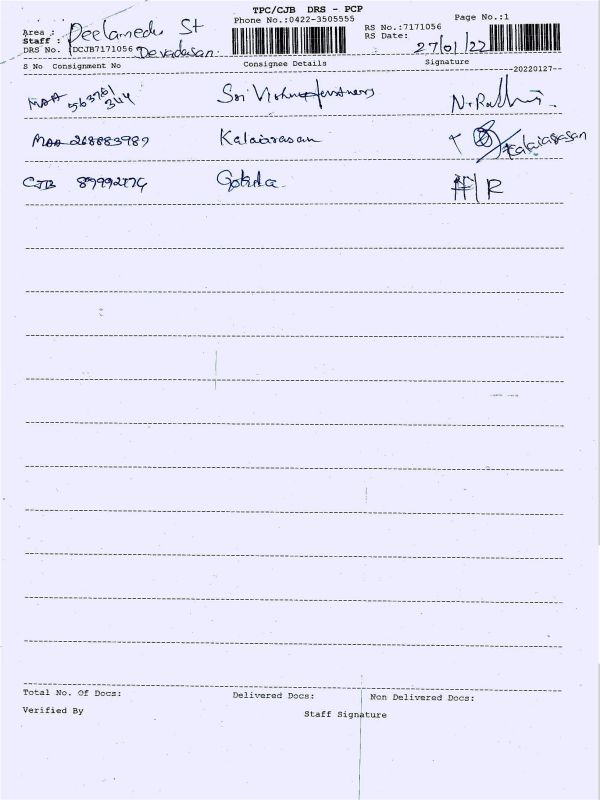 TPC/CJB DRS - PCP
Phone No.:0422-3505555
Page No.:1
Area : Peelamedu St
RS No.:7171056
Staff : Devadasan
RS Date: 27/01/22
DRS No. DCJB7171056
S No Consignment No Consignee Details Signature
--20220127--
MAA 563761344 Sri Vishnu
MAA 268883989 Kalaiarasan Kalaiarasan
CJB 89992174 Gokila R
Total No. Of Docs: Delivered Docs: Non Delivered Docs:
Verified By Staff Signature